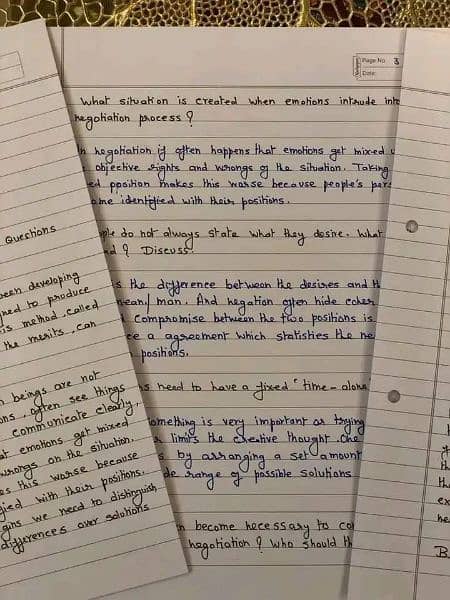 Page No. 3
Date:
What situation is created when emotions intrude into
negotiation process?
negotiation if often happens that emotions get mixed
objective rights and wrongs of the situation. Taking
position makes this worse because people's
identified with their positions.
do not always state what they desire. What
? Discuss.
the difference between the desires and
man. And negation often hide
compromise between the two positions is
a agreement which statisfies the
positions.
need to have a fixed "time-alone
something is very important as trying
limits the creative thought. One
by arranging a set amount
range of possible solutions
become necessary to
negotiation? Who should
Questions
been developing
to produce
method, called
the merits, can
beings are not
often see things
communicate clearly,
emotions get mixed
wrongs on the situation.
this worse because
with their positions.
we need to distinguish
differences over solutions
B